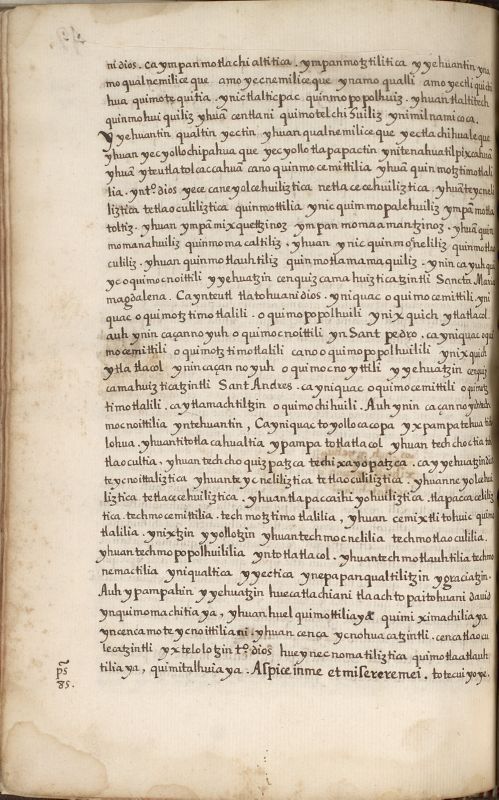 ni dios. ca ympan motlachialtitica. ympan motztilitica y yehuantin yna
mo qualnemilice que amo yecnemilice que ynamo qualli amo yectli quichi
hua quimotequitia. ynic tlalticpac quinmopopolhuiz. yhuan tlaltitech
quinmohuiquiliz yhuā centlani quimotelchihuiliz ynimilnamicoca.
Y yehuantin qualtin yectin yhuan qualnemilice que yectlachihuale que
yhuan yecyollochipahua que yecyollotlapapactin ynitenahuatilpixcahuā
yhuā yteutlatolcaccahuā cano quinmocemittilia yhuā quinmotztimotlali
lia. yn t.º dios yece ca ne yolcehuiliztica netlacecehuiliztica. yhuā teycneli
liztica tetlaoculiliztica quinmottilia ynic quinmopalehuiliz ympā motla
toltiz. yhuan ympā mixquetzinoz ympan momaamantzinoz. yhuā quin
momanahuiliz quinmomacaltiliz. yhuan ynic quinmocneliliz quinmotlao
culiliz. yhuan quinmotlauhtiliz quinmotlamamaquiliz. ynin ca yuh qui
yc oquimocnoittili y yehuatzin cenquizcamahuizticatzintli Sancta Maria
magdalena. Ca ynteutl tlatohuani dios. yniquac oquimocemittili. yni
quac oquimotztimotlalili. oquimopopolhuili ynixquich ytlatlacol.
auh ynin caçanno yuh oquimocnoittili yn Sant pedro. ca yniquac oqui
mocemittili oquimotztimotlalili cano oquimopopolhuilili ynixquich
ytlatlacol ynin caçanno yuh oquimocnoyttili y yehuatzin cenquiz
camahuizticatzintli Sant Andres. ca yniquac oquimocemittili oquimotz
timotlalili. ca ytlamachtiltzin oquimochihuili. Auh ynin caçanno yuh tech
mocnoittilia yntehuantin, Ca yniquac toyollocacopa yxpampatehua ti
lohua. yhuan titotlacahualtia ypampa totlatlacol yhuan techchoctia
tlaocultia, yhuan techchoquizpatzca techixayopatzca. ca y yehuatzin dios
teycnoittaliztica yhuan teycneliliztica tetlaoculiliztica. yhuan neyolcehui
liztica tetlacecehuiliztica. yhuan tlapaccaihiyohuiliztica. tlapaccaceliliz
tica. techmocemittilia. techmotztimotlalilia, yhuan cemixtli tohuic quimo
tlalilia. ynixtzin yyollotzin yhuan techmocnelilia techmotlaoculilia.
yhuan techmopopolhuililia yn totlatlacol. yhuan techmotlauhtilia techmo
nemactilia yniqualtica yyectica ynepapanqualtiliztzin ygraciatzin.
Auh ypampahin y yehuatzin huecatlachiani tlaachtopaitohuani dauid
ynquimomachitiaya, yhuan huel quimottiliaya &c quimiximachiliaya
yn cenca moteycnoittiliani. yhuan cenca ycnohuacatzintli. cenca tlaocu
lecatzintli yxtelolotzin t.º dios huey necnomatiliztica quimotlatlauh
tiliaya, quimitalhuiaya. Aspice in me et miserere mei. totecuiyoye.
ps̄
85.